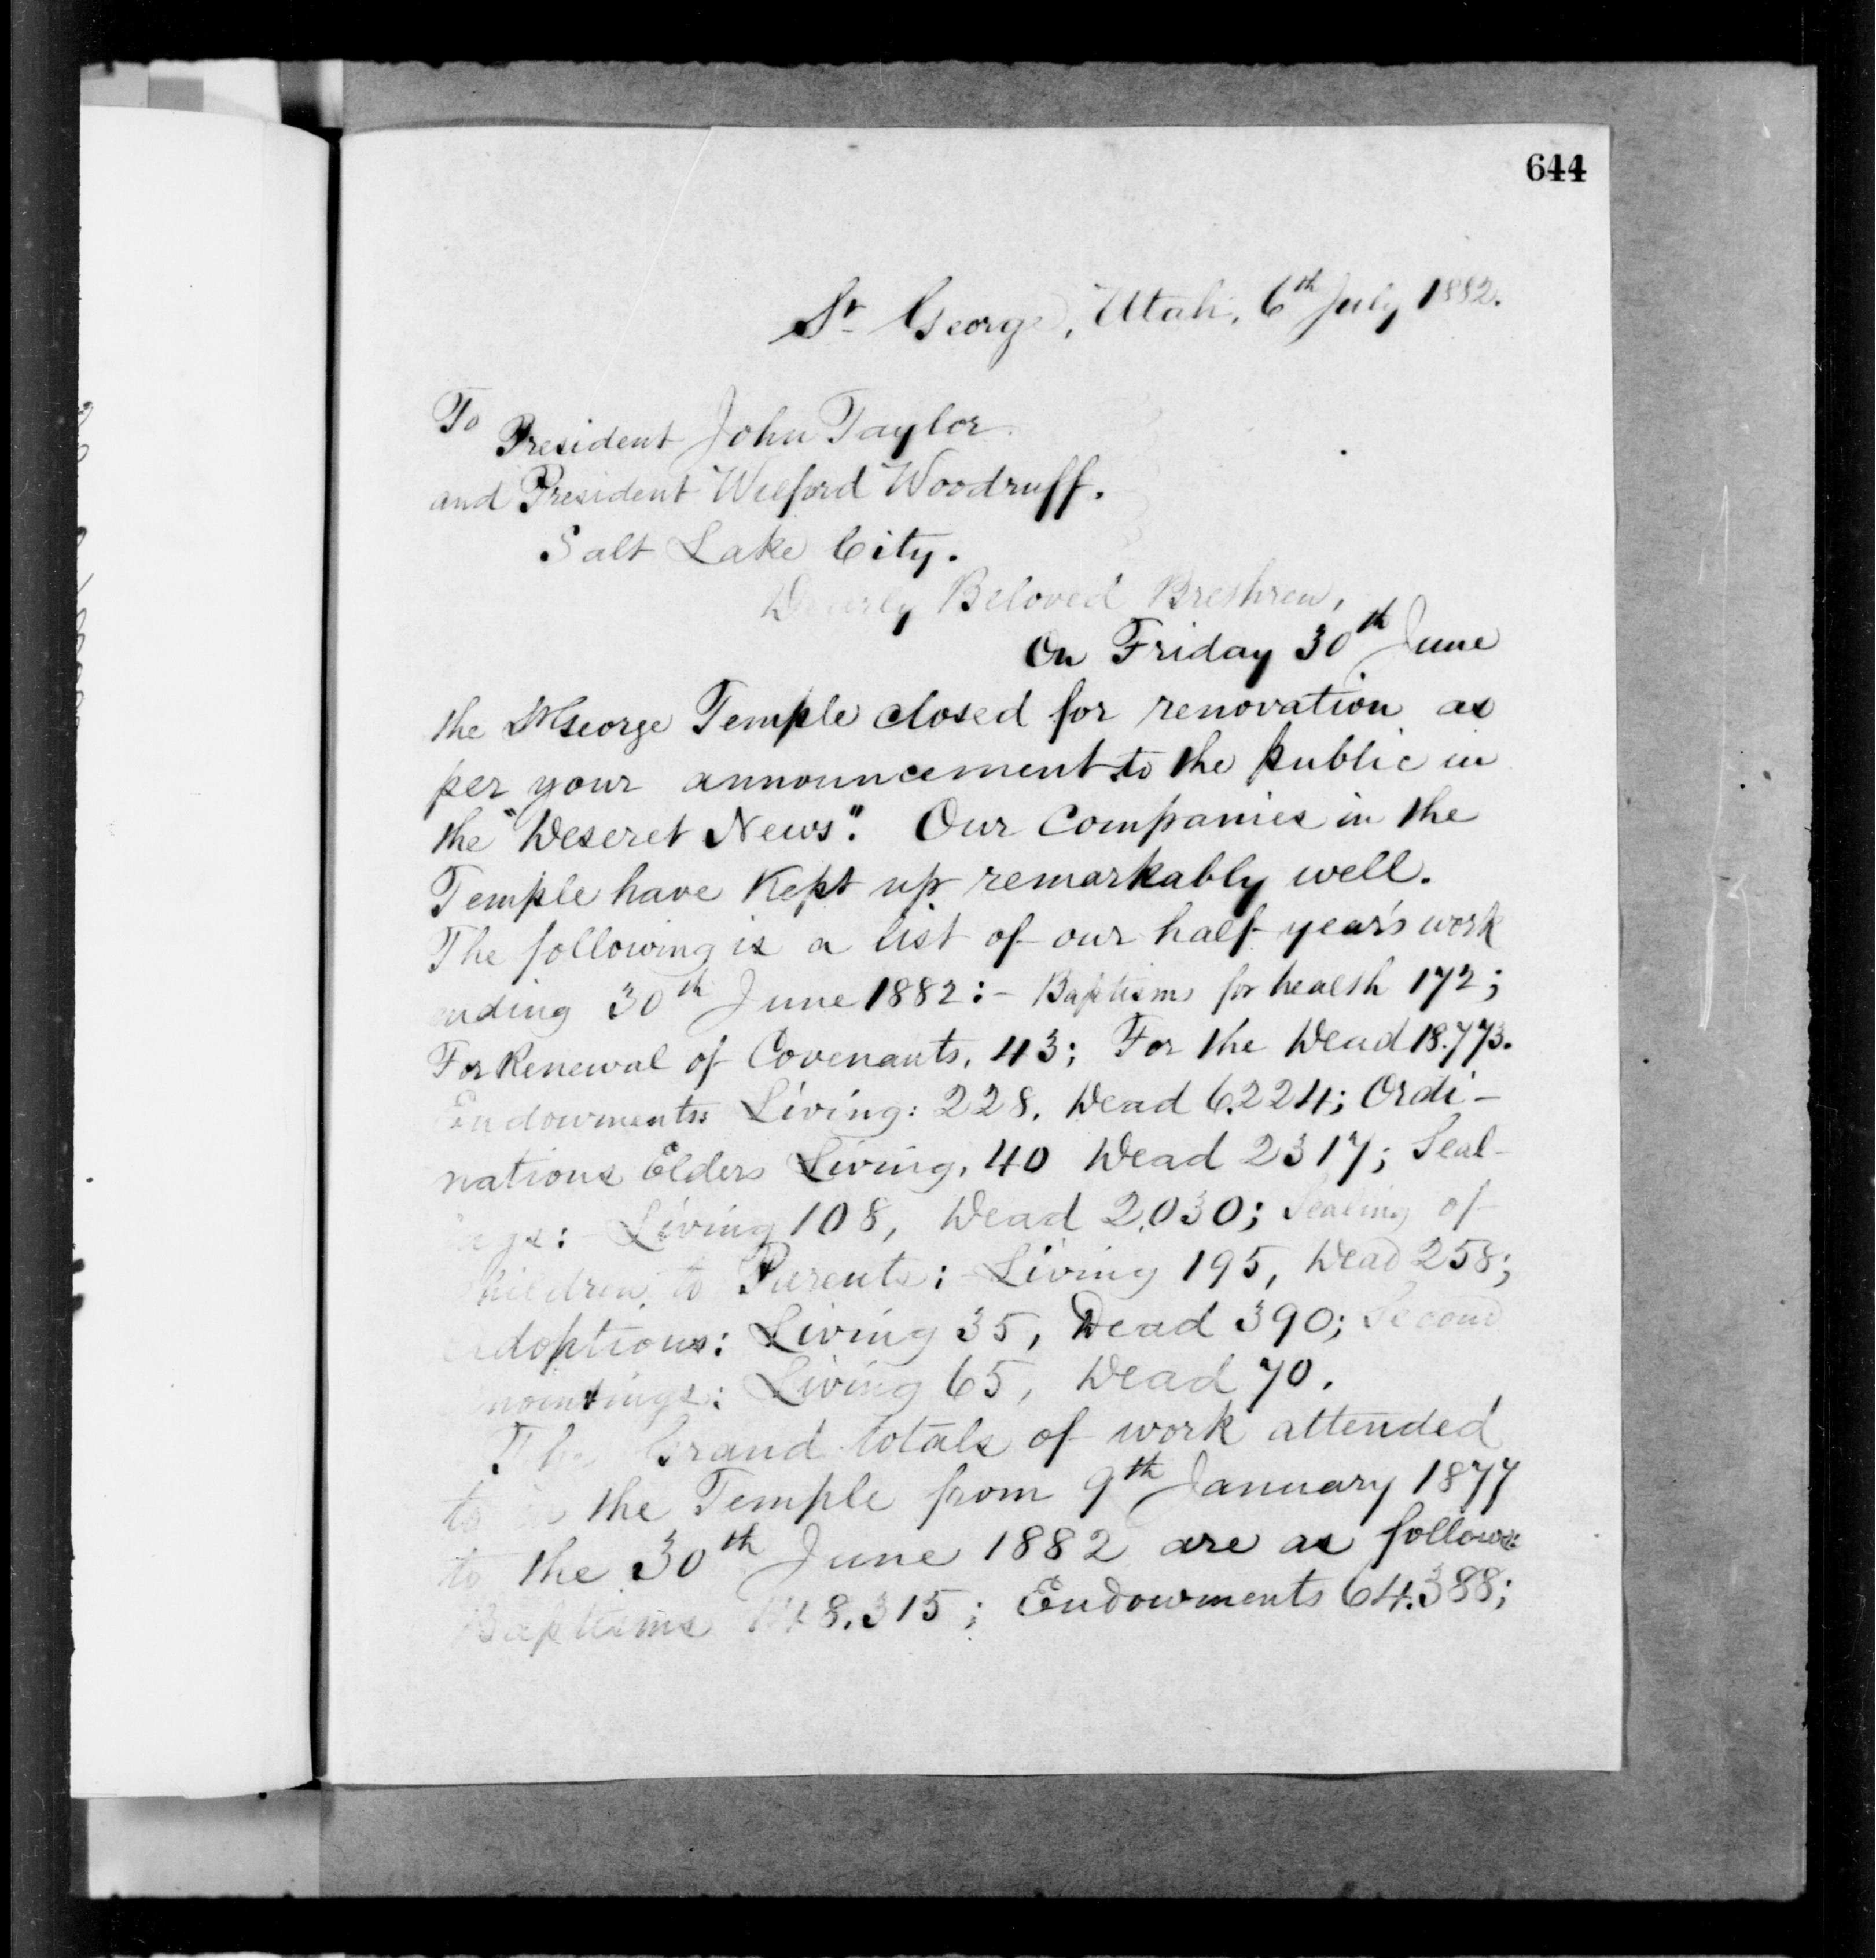 644
St George, Utah, 6th July 1882.
To President John Taylor
and President Wilford Woodruff.
Salt Lake City.
Dearly Beloved Brethren,
On Friday 30th June
the St George Temple closed for renovation as
per your announcement to the public in
the "Deseret News". Our Companies in the
Temple have Kept up remarkably well.
The following is a list of our half year's work
ending 30th June 1882:- Baptisms for health 172;
For Renewal of Covenants, 43; For the Dead 18.773.
Endowments: Living: 228, Dead 6.224; Ordi-
nations Elders Living, 40 Dead 2317; Seal-
ings: Living 108, Dead 2,030; Sealing of
Children to Parents: Living 195, Dead 258;
Adoptions: Living 35, Dead 390; Second
Anointings: Living 65, Dead 70.
The Grand totals of work attended
to in the Temple from 9th January 1877
to the 30th June 1882 are as follows:
Baptisms ; Endowments 64.388;